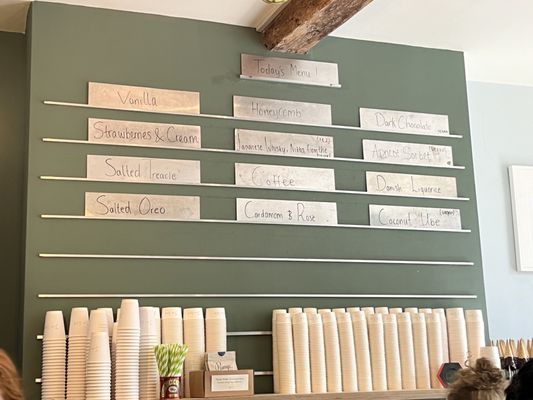 Today's Menu!
Vanilla
Honeycomb
Dark Chocolate
VEGAN
Strawberries & Cream
Japanese Whisky, Nikka from the
Apricot Sorbet
Salted Treacle
Coffee
Danish Liquorice
Salted Oreo
Cardamom & Rose
Coconut Ube